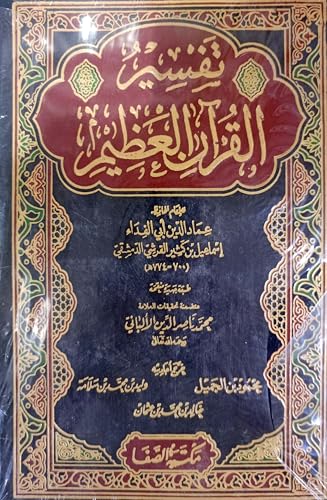 تفسير
القرآن العظيم
للإمام الحافظ
عماد الدين أبي الفداء
إسماعيل بن كثير القرشي الدمشقي
(٧٠٠-٧٧٤هـ)
طبعة جديدة منقحة
متضمنة تحقيقات العلامة
محمد ناصر الدين الألباني
رحمه الله تعالى
خرج أحاديثه
محمود بن الجميل
وليد بن محمد بن سلامة
خالد بن محمد بن عثمان
مكتبة الصفا